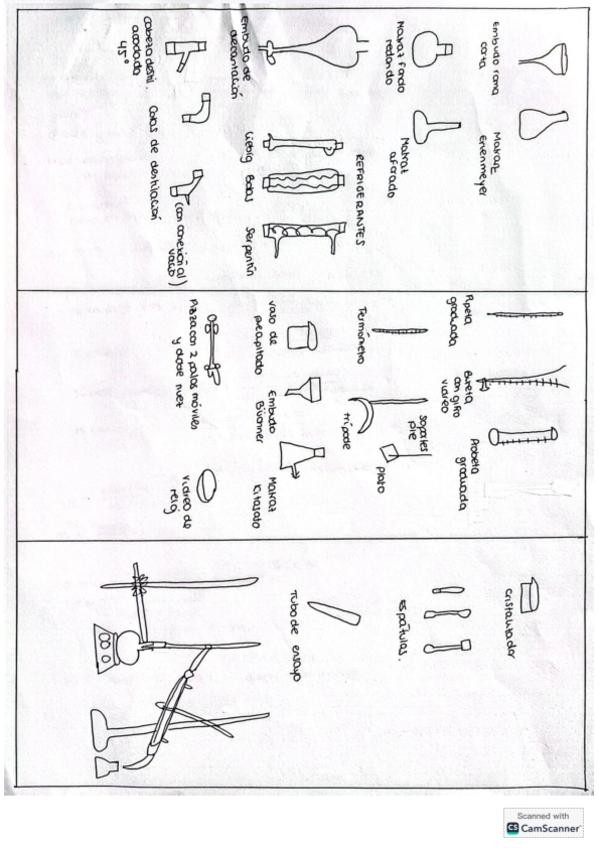 Embudo rama
corta
Matraz
Erlenmeyer
Matraz fondo
redondo
Matraz
aforado
Embudo de
decantación
REFRIGERANTES
Liebig
Bolas
Serpentín
Cabeza destil.
acodada
45°
Colas de destilación
(con conexión al
vacío)
Pipeta
graduada
Bureta
con grifo
vidreo
Probeta
graduada
Termómetro
soportes
pie
trípode
plato
vaso de
precipitado
Embudo
Büchner
Matraz
Kitasato
Pinza con 2 palas móviles
y doble nuez
vidreo de
reloj
Cristalizador
espátulas.
Tubo de ensayo
Scanned with
CS CamScanner